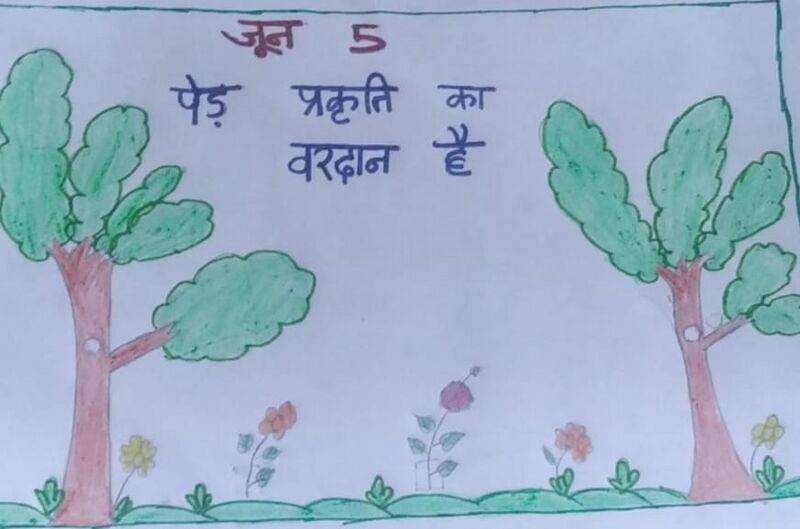 जून 5
पेड़ प्रकृति का
वरदान है